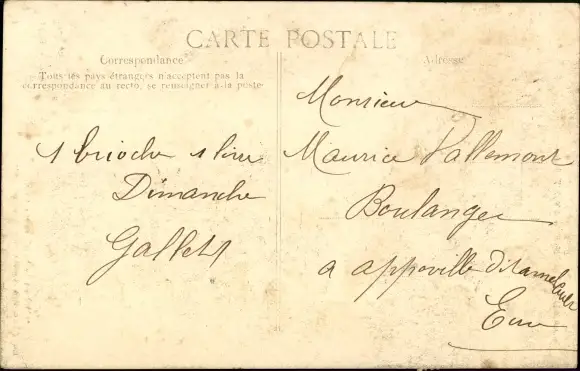 CARTE POSTALE
Correspondance
Tous les pays étrangers n'acceptent pas la
correspondance au recto, se renseigner à la poste
1 brioche 1 livre
Dimanche
Adresse
Monsieur
Maurice Vallemont
Boulanger
a appeville dit
Eure